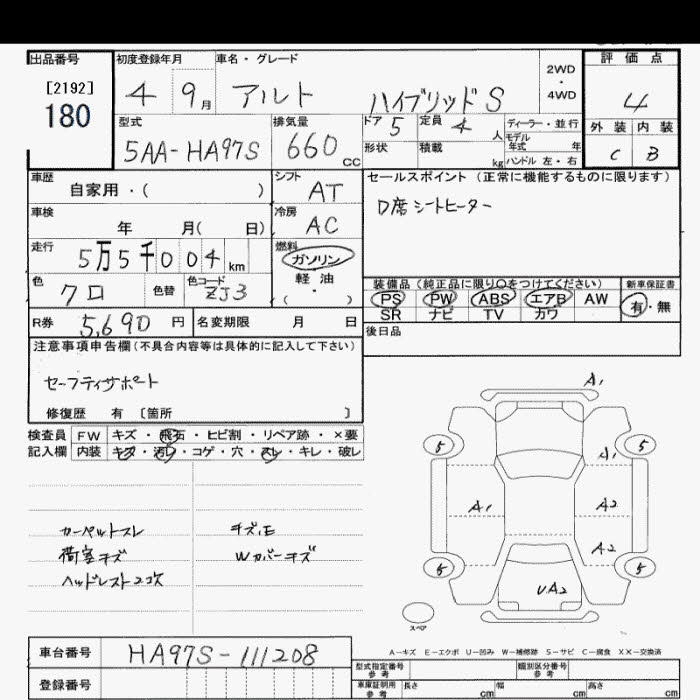 出品番号
[2192]
180
初度登録年月
4 9月
車名・グレード
アルト ハイブリッドS
2WD
・
4WD
評価点
4
外装 内装
C B
型式
5AA-HA97S
排気量
660 cc
ドア 5
定員 4 人
ディーラー・並行
モデル
年式 年
形状
積載 kg
ハンドル 左・右
車歴
自家用・( )
シフト
AT
車検
年 月( 日)
冷房
AC
走行
5万5千004 km
燃料
ガソリン
軽油
・
( )
色
クロ
色替
色コード
ZJ3
R券
5,690 円
名変期限 月 日
セールスポイント (正常に機能するものに限ります)
D席シートヒーター
装備品 (純正品に限り○をつけてください)
新車保証書
PS PW ABS エアB AW
SR ナビ TV カワ
有・無
後日品
注意事項申告欄(不具合内容等は具体的に記入して下さい)
セーフティサポート
修復歴 有 〔箇所 〕
検査員
記入欄
FW キズ・飛石・ヒビ割・リペア跡・×要
内装 キズ・汚レ・コゲ・穴・スレ・キレ・破レ
カーペットスレ
荷室キズ
ヘッドレスト2コ欠
キズ、E
Wカバーキズ
A1
5 5
A1
A1 A2
A2
5 5
UA2
スペア
A-キズ E-エクボ U-凹み W-補修跡 S-サビ C-腐食 XX-交換済
車台番号
HA97S-111208
登録番号
型式指定番号
参考
類別区分番号
参考
車庫証明用
参考
長さ cm
幅 cm
高さ cm